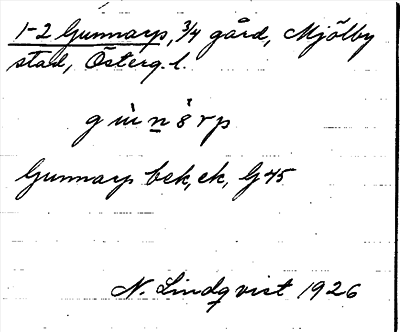 1-2 Gunnarp, 3/4 gård, Mjölby
stad, Österg. l.
Gunnarp bek, ek, G 45
N. Lindqvist 1926